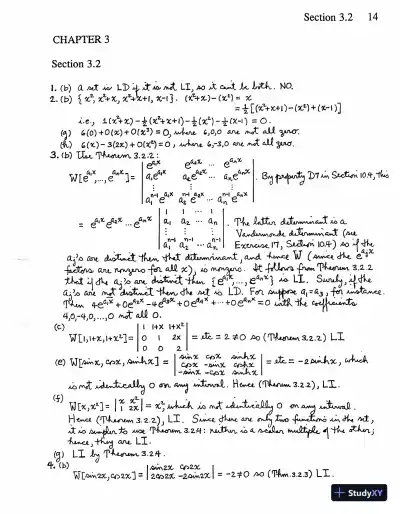 Section 3.2 14
CHAPTER 3
Section 3.2
1. (b) A set is LD if it is not LI, so it can't be both. NO.
2. (b) { x², x²+x, x²+x+1, x-1 }. (x²+x)-(x²) = x
= ½[(x²+x+1)-(x²)+(x-1)]
i.e., 1(x²+x) - ½(x²+x+1) - ½(x²) - ½(x-1) = 0.
(g) 6(0)+0(x)+0(x³) = 0, where 6,0,0 are not all zero.
(h) 6(x)-3(2x)+0(x²) = 0, where 6,-3,0 are not all zero.
3. (b) Use Theorem 3.2.2:
W[e^{a₁x},...,e^{aₙx}] = | e^{a₁x} e^{a₂x} ... e^{aₙx} |
| a₁e^{a₁x} a₂e^{a₂x} ... aₙe^{aₙx} |
| a₁^{n-1}e^{a₁x} a₂^{n-1}e^{a₂x} ... aₙ^{n-1}e^{aₙx} | . By property D7 in Section 10.4, this
= e^{a₁x}e^{a₂x}...e^{aₙx} | 1 1 ... 1 |
| a₁ a₂ ... aₙ |
| a₁^{n-1} a₂^{n-1} ... aₙ^{n-1} | . The latter determinant is a
Vandermonde determinant (see
Exercise 17, Section 10.4) so if the
aⱼ's are distinct then that determinant, and hence W (since the e^{aⱼx}
factors are nonzero for all x), is nonzero. It follows from Theorem 3.2.2
that if the aⱼ's are distinct then {e^{a₁x},...,e^{aₙx}} is LI. Surely, if the
aⱼ's are not distinct then the set is LD. For suppose a₁=a₃, for instance.
Then 4e^{a₁x}+0e^{a₂x}-4e^{a₃x}+0e^{a₄x}+...+0e^{aₙx} = 0 with the coefficients
4,0,-4,0,...,0 not all 0.
(c)
W[1,1+x,1+x²] = | 1 1+x 1+x² |
| 0 1 2x |
| 0 0 2 | = etc = 2 ≠ 0 so (Theorem 3.2.2) LI
(e) W[sinx, cosx, sinhx] = | sinx cosx sinhx |
| cosx -sinx coshx |
| -sinx -cosx sinhx | = etc = -2sinhx, which
is not identically 0 on any interval. Hence (Theorem 3.2.2), LI.
(f)
W[x,x²] = | x x² |
| 1 2x | = x², which is not identically 0 on any interval.
Hence (Theorem 3.2.2), LI. Since there are only two functions in the set,
it is simpler to use Theorem 3.2.4: neither is a scalar multiple of the other;
hence, they are LI.
(g) LI by Theorem 3.2.4.
4. (b)
W[sin2x, cos2x] = | sin2x cos2x |
| 2cos2x -2sin2x | = -2 ≠ 0 so (Thm.3.2.3) LI.
StudyXY